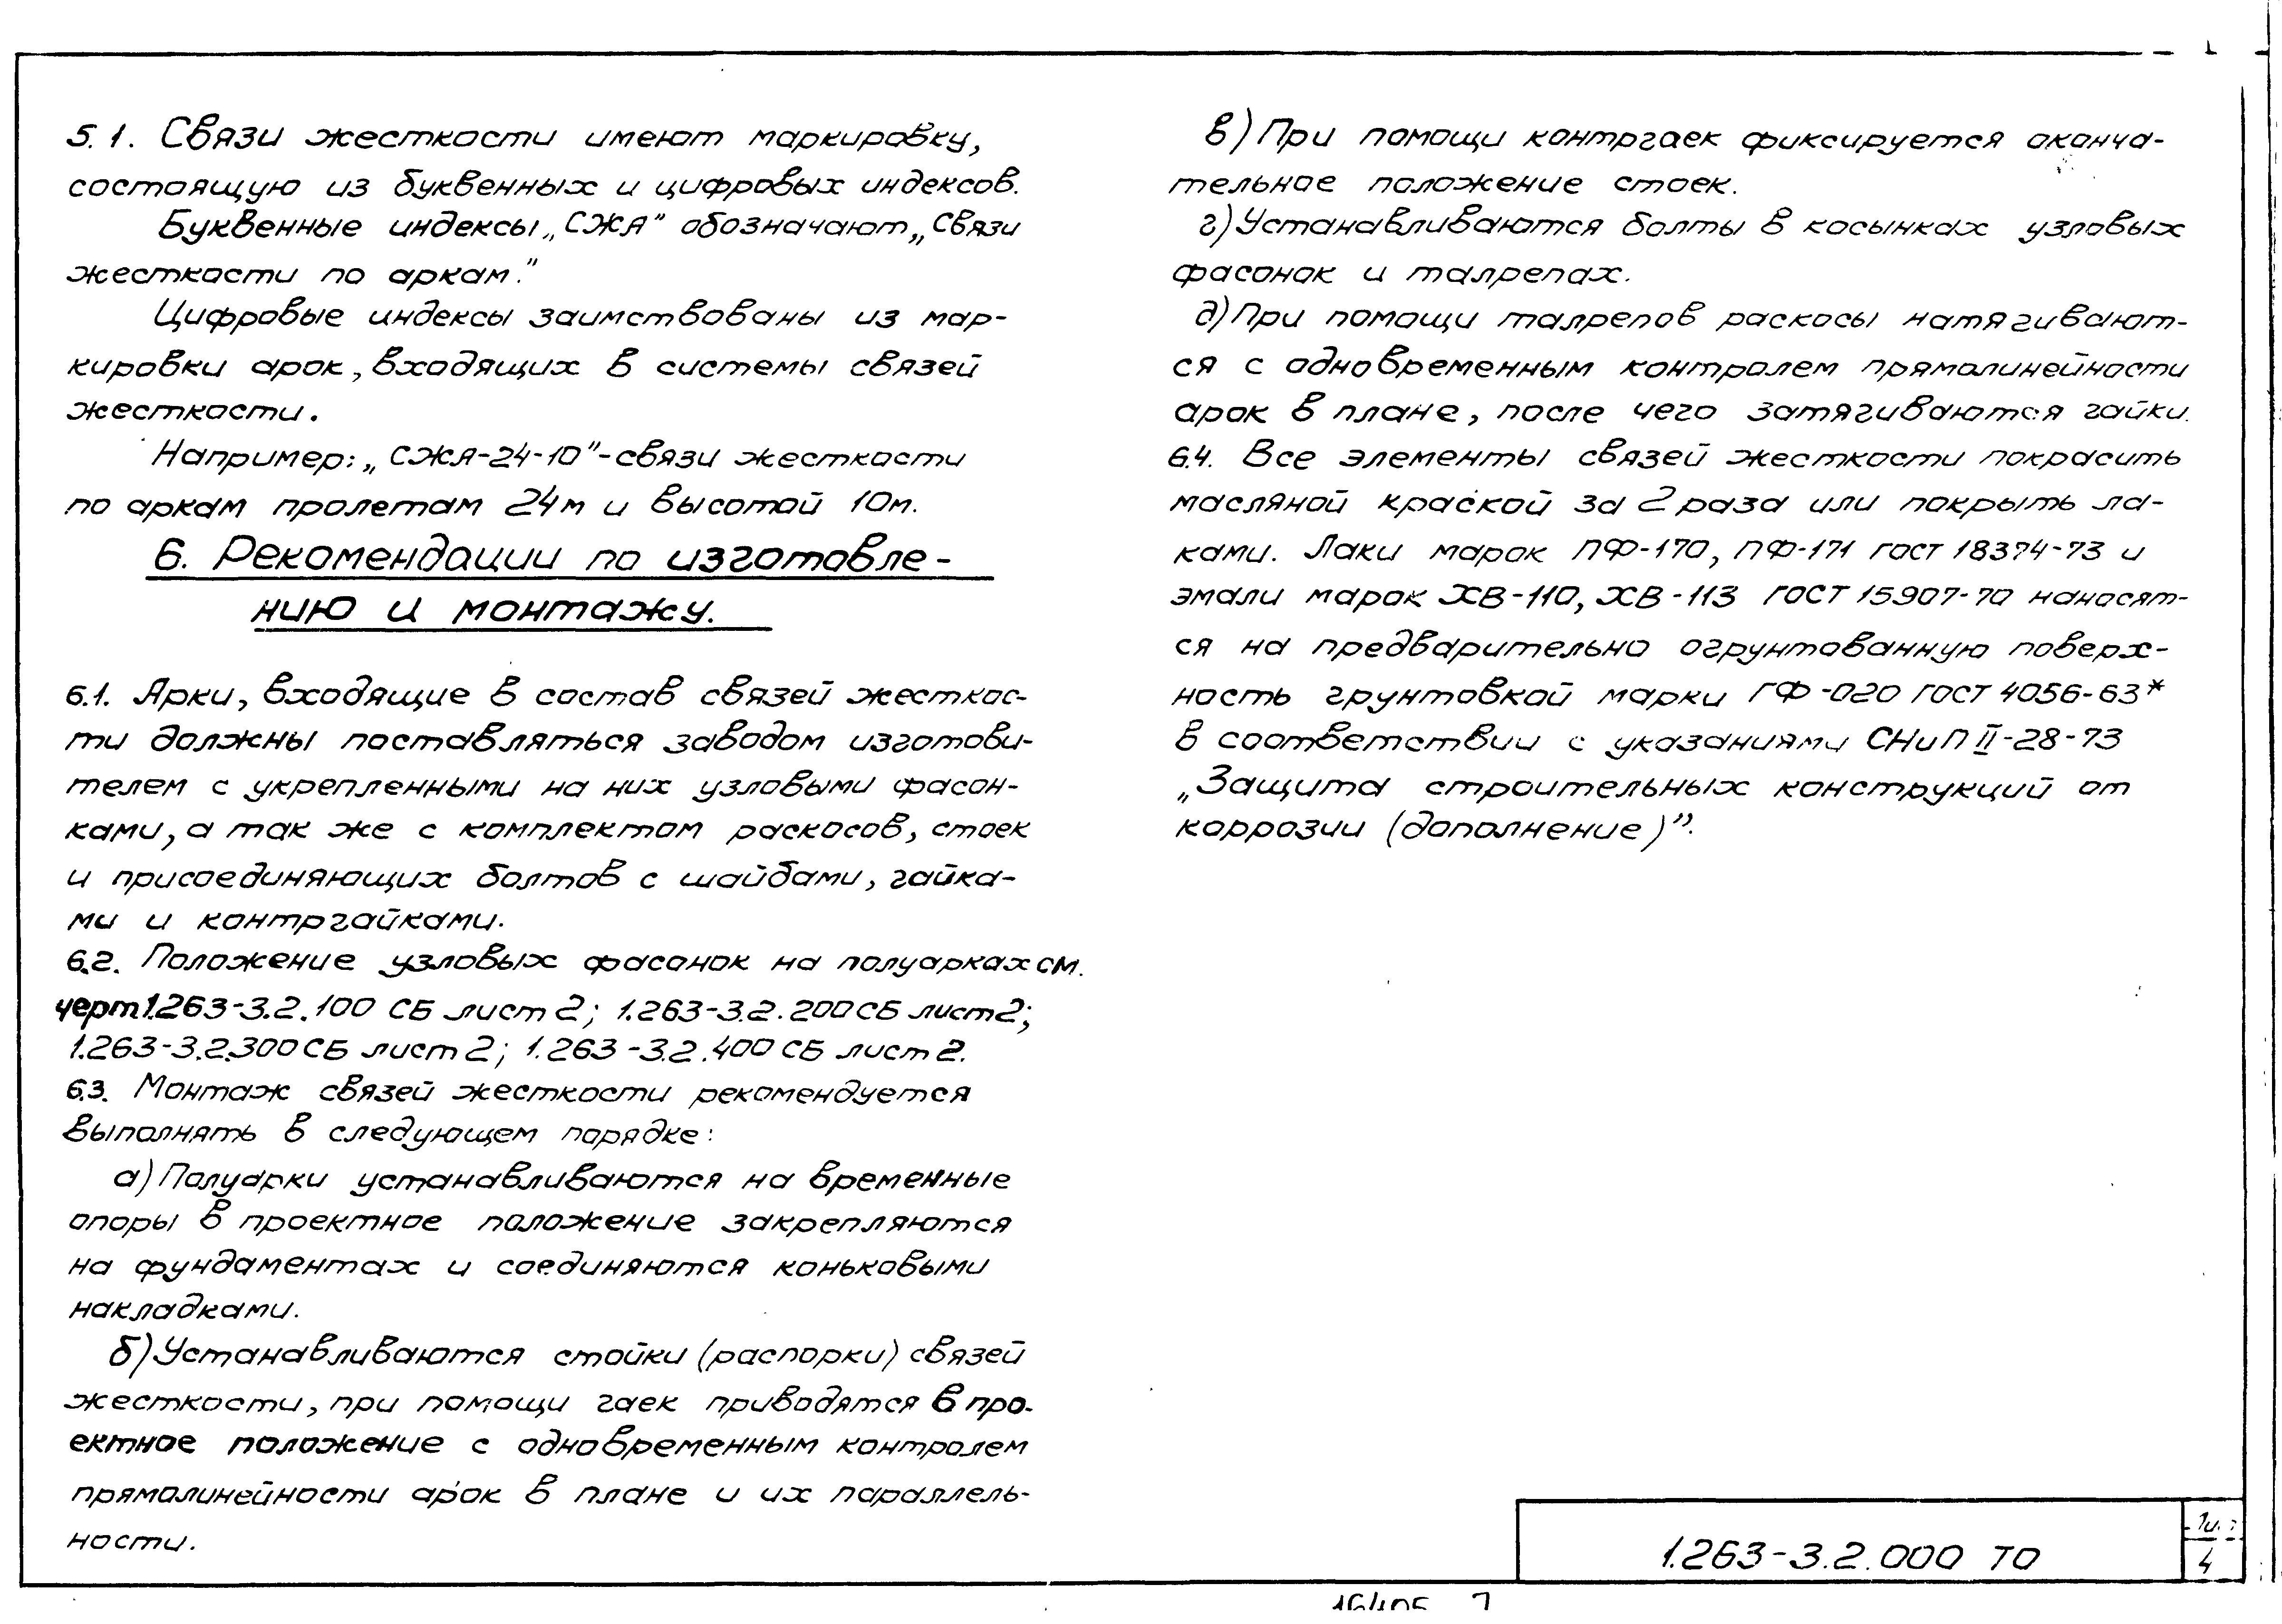 5.1. Связи жесткости имеют маркировку,
состоящую из буквенных и цифровых индексов.
Буквенные индексы „СЖА” обозначают „Связи
жесткости по аркам.”
Цифровые индексы заимствованы из мар-
кировки арок, входящих в системы связей
жесткости.
Например: „СЖА-24-10”-связи жесткости
по аркам пролетам 24м и высотой 10м.
6. Рекомендации по изготовле-
нию и монтажу.
6.1. Арки, входящие в состав связей жесткос-
ти должны поставляться заводом изготови-
телем с укрепленными на них узловыми фасон-
ками, а так же с комплектом раскосов, стоек
и присоединяющих болтов с шайбами, гайка-
ми и контргайками.
6.2. Положение узловых фасонок на полуарках см.
черт 1.263-3.2.100 СБ лист 2; 1.263-3.2.200 СБ лист 2;
1.263-3.2.300 СБ лист 2; 1.263-3.2.400 СБ лист 2.
6.3. Монтаж связей жесткости рекомендуется
выполнять в следующем порядке:
а) Полуарки устанавливаются на временные
опоры в проектное положение закрепляются
на фундаментах и соединяются коньковыми
накладками.
б) Устанавливаются стойки (распорки) связей
жесткости, при помощи гаек приводятся в про-
ектное положение с одновременным контролем
прямолинейности арок в плане и их параллель-
ности.
в) При помощи контргаек фиксируется оконча-
тельное положение стоек.
г) Устанавливаются болты в косынках узловых
фасонок и талрепах.
д) При помощи талрепов раскосы натягивают-
ся с одновременным контролем прямолинейности
арок в плане, после чего затягиваются гайки.
6.4. Все элементы связей жесткости покрасить
масляной краской за 2 раза или покрыть ла-
ками. Лаки марок ПФ-170, ПФ-171 ГОСТ 18374-73 и
эмали марок ХВ-110, ХВ-113 ГОСТ 15907-70 наносят-
ся на предварительно огрунтованную поверх-
ность грунтовкой марки ГФ-020 ГОСТ 4056-63*
в соответствии с указаниями СНиП II-28-73
„Защита строительных конструкций от
коррозии (дополнение)”.
1.263-3.2.000 ТО
4